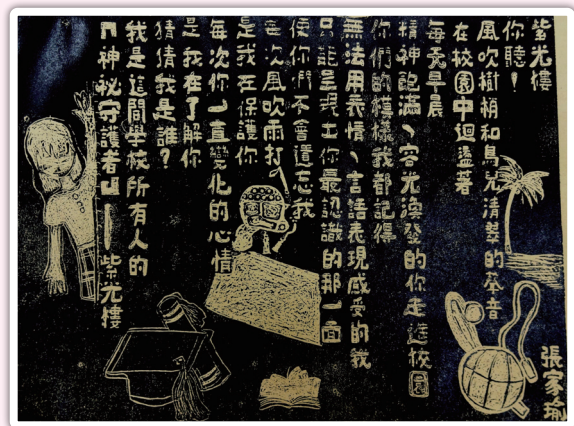 紫光樓
你聽！
風吹樹梢和鳥兒清翠的聲音
在校園中迴盪著
每天早晨
精神飽滿、容光渙發的你走進校園
你們的模樣我都記得
無法用表情、言語表現感受的我
只能呈現出你最認識的那一面
使你們不會遺忘我
每次風吹雨打
是我在保護你
每次你一直變化的心情
是我在了解你
猜猜我是誰？
我是這間學校所有人的
『神秘守護者』—紫光樓
張家瑜